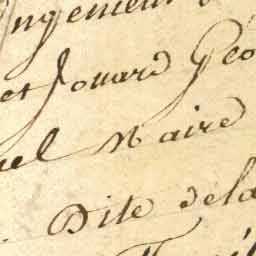 ngenieur
et Jouard Géo
uel Naire
Dite dela